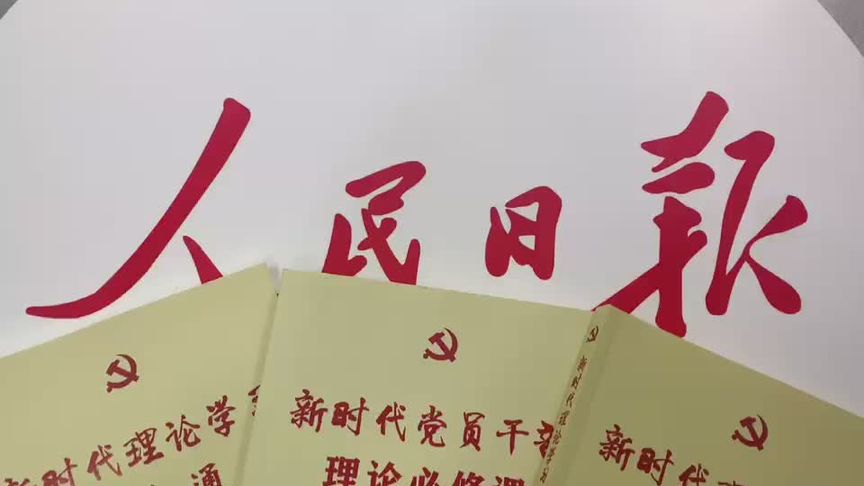 人民日报
新时代理论学
通
新时代党员干部
理论必修课
新时代理论学习
新时代